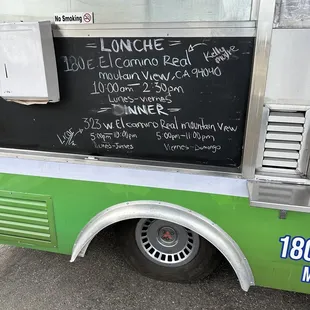 No Smoking
= LONCHE =
180 E El Camino Real
moutain View, CA 94040
10:00am - 2:30pm
Lunes-viernes
= DINNER =
323 W El Camino Real mountain View
5:00pm-10:00pm 5:00pm-11:00pm
Lunes-Jueves Viernes-Domingo
180
M